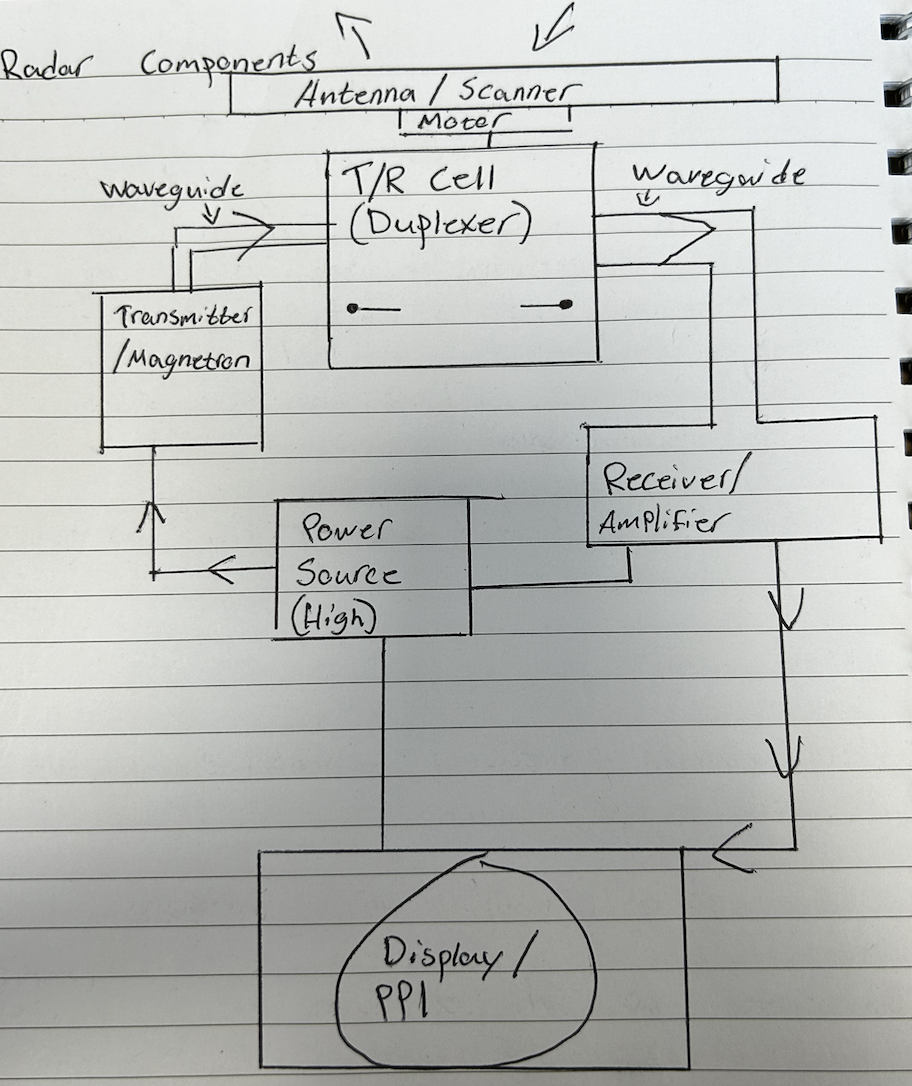 Radar Components
Antenna / Scanner
Motor
Waveguide
T/R Cell
(Duplexer)
Waveguide
Transmitter
/Magnetron
Receiver/
Amplifier
Power
Source
(High)
Display /
PPI